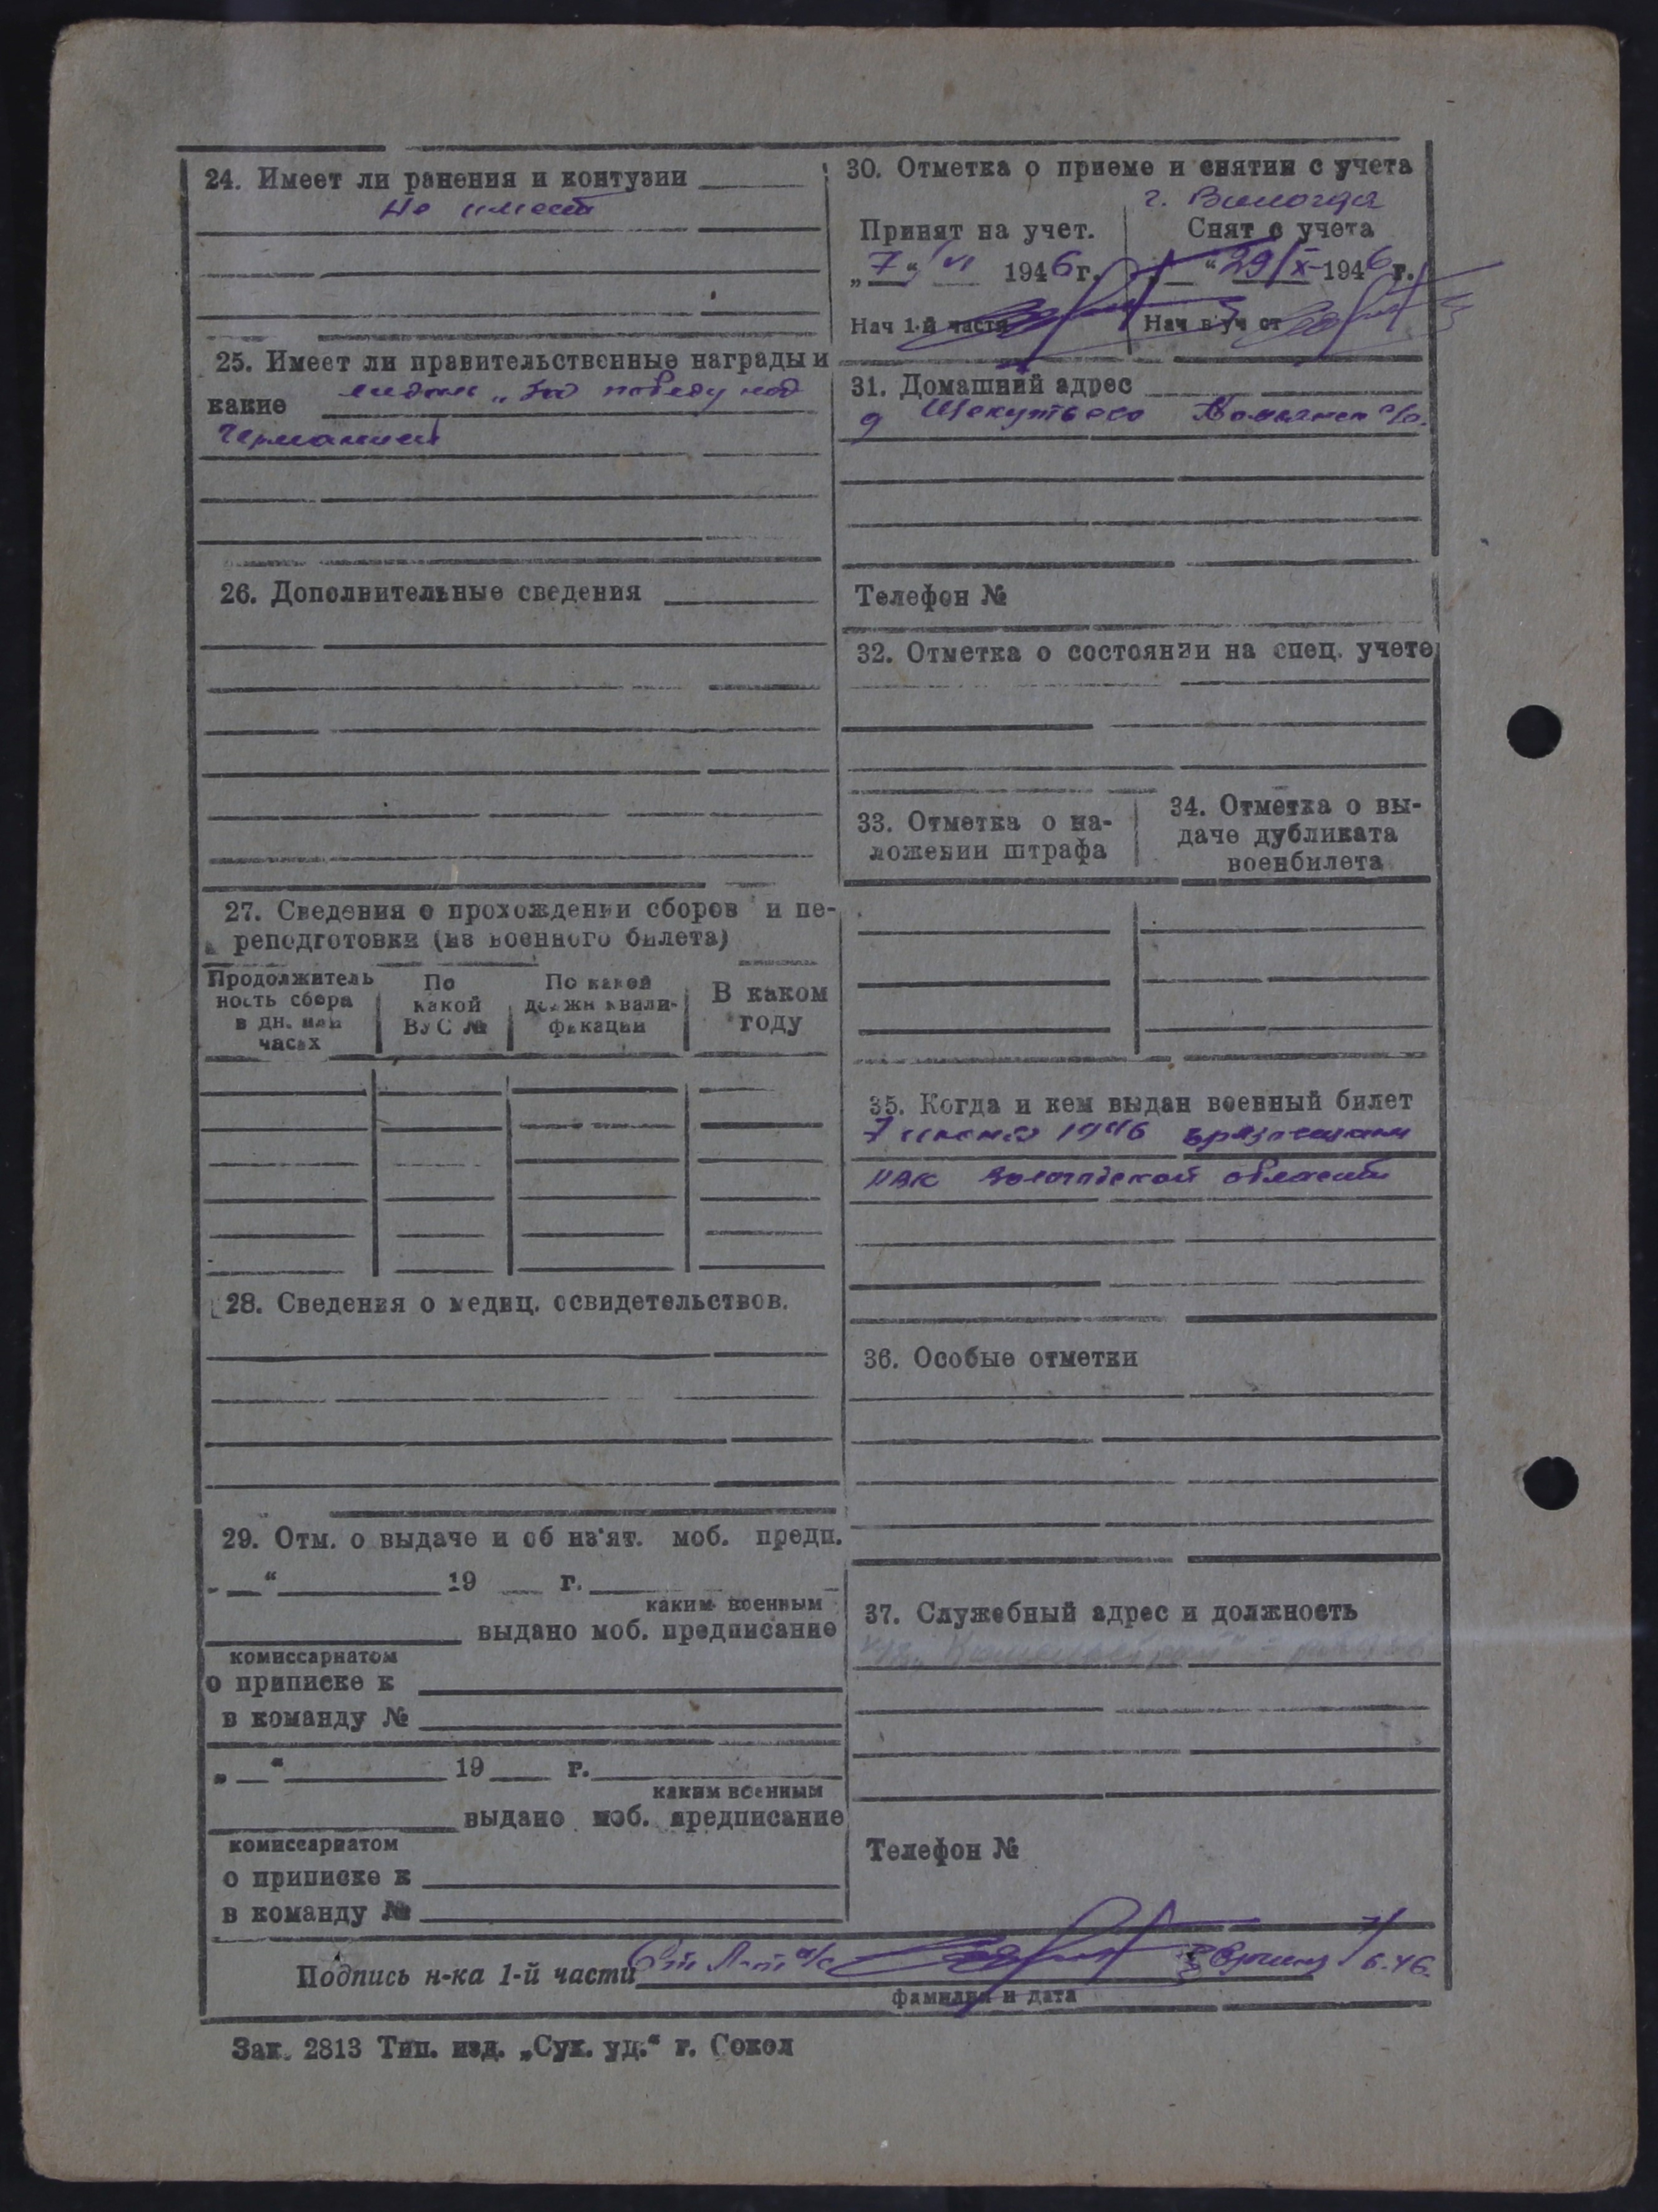 24. Имеет ли ранения и контузии
Не имеет
25. Имеет ли правительственные награды и
какие медаль „За победу над
Германией
26. Дополнительные сведения
27. Сведения о прохождении сборов и пе-
реподготовки (из военного билета)
Продолжитель
ность сбора
в дн. или
часах
По
какой
ВУС №
По какой
должн квали-
фикации
В каком
году
28. Сведения о медиц. освидетельствов.
29. Отм. о выдаче и об из'ят. моб. предп.
„ “ 19 г.
каким военным
выдано моб. предписание
комиссариатом
о приписке к
в команду №
„ “ 19 г.
каким военным
выдано моб. предписание
комиссариатом
о приписке к
в команду №
30. Отметка о приеме и снятии с учета
г. Вологда
Принят на учет.
„7“ VI 1946 г.
Нач 1-й части
Снят с учета
“ 29/X 1946 г.
Нач в уч ст
31. Домашний адрес
д с/с.
Телефон №
32. Отметка о состоянии на спец. учете
33. Отметка о на-
ложении штрафа
34. Отметка о вы-
даче дубликата
военбилета
35. Когда и кем выдан военный билет
7 июня 1946
РВК Вологодской области
36. Особые отметки
37. Служебный адрес и должность
Телефон №
Подпись н-ка 1-й части Ст. Л-т а/с 7/6.46.
фамилия и дата
Зак. 2813 Тип. изд. „Сух. уд.“ г. Сокол